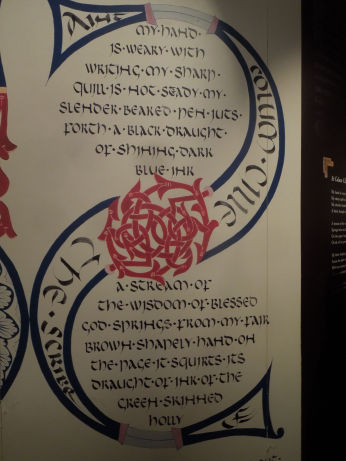 Saint
MY·HAND·
IS·WEARY·WITH
WRITING·MY·SHARP·
QUILL·IS·NOT·STEADY·MY·
SLENDER·BEAKED·PEN·JUTS·
FORTH·A·BLACK·DRAUGHT·
OF·SHINING·DARK
BLUE·INK
COLUM·CILLE
THE·SCRIBE
A·STREAM·OF
THE·WISDOM·OF·BLESSED
GOD·SPRINGS·FROM·MY·FAIR
BROWN·SHAPELY·HAND·ON
THE·PAGE·IT·SQUIRTS·ITS
DRAUGHT·OF·INK·OF·THE
GREEN·SKINNED
HOLLY